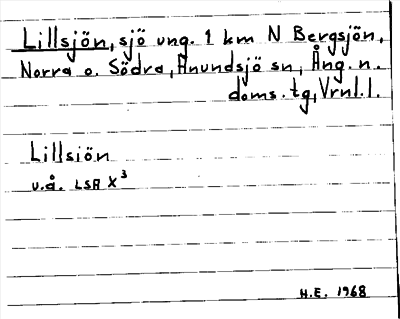 Lillsjön, sjö ung. 1 km N Bergsjön,
Norra o. Södra, Anundsjö sn, Ång. n.
doms. tg, Vrnl. l.
Lillsjön
u.å. LSA X³
H.E. 1968